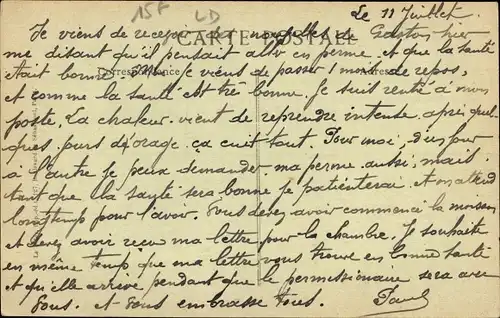 15F
LD
Le 11 Juillet.
CARTE POSTALE
Correspondance
Je viens de recevoir des nouvelles de Gaston hier
me disant qu'il pensait aller en perme. et que la santé
était bonne. Moi je viens de passer 1 mois de repos,
et comme la santé est très bonne. Je suis rentré à mon
poste. La chaleur vient de reprendre intense après quel-
ques jours d'orage. ça cuit tout. Pour moi, d'un jour
à l'autre je peux demander ma perme aussi, mais
tant que la santé sera bonne je patienterai. et on attend
longtemps pour l'avoir. Vous devez avoir commencé la moisson
et devez avoir reçu ma lettre pour la chambre. Je souhaite
en même temps que ma lettre vous trouve en bonne santé
et qu'elle arrive pendant que le permissionnaire sera avec
Vous. et Vous embrasse tous. Paul